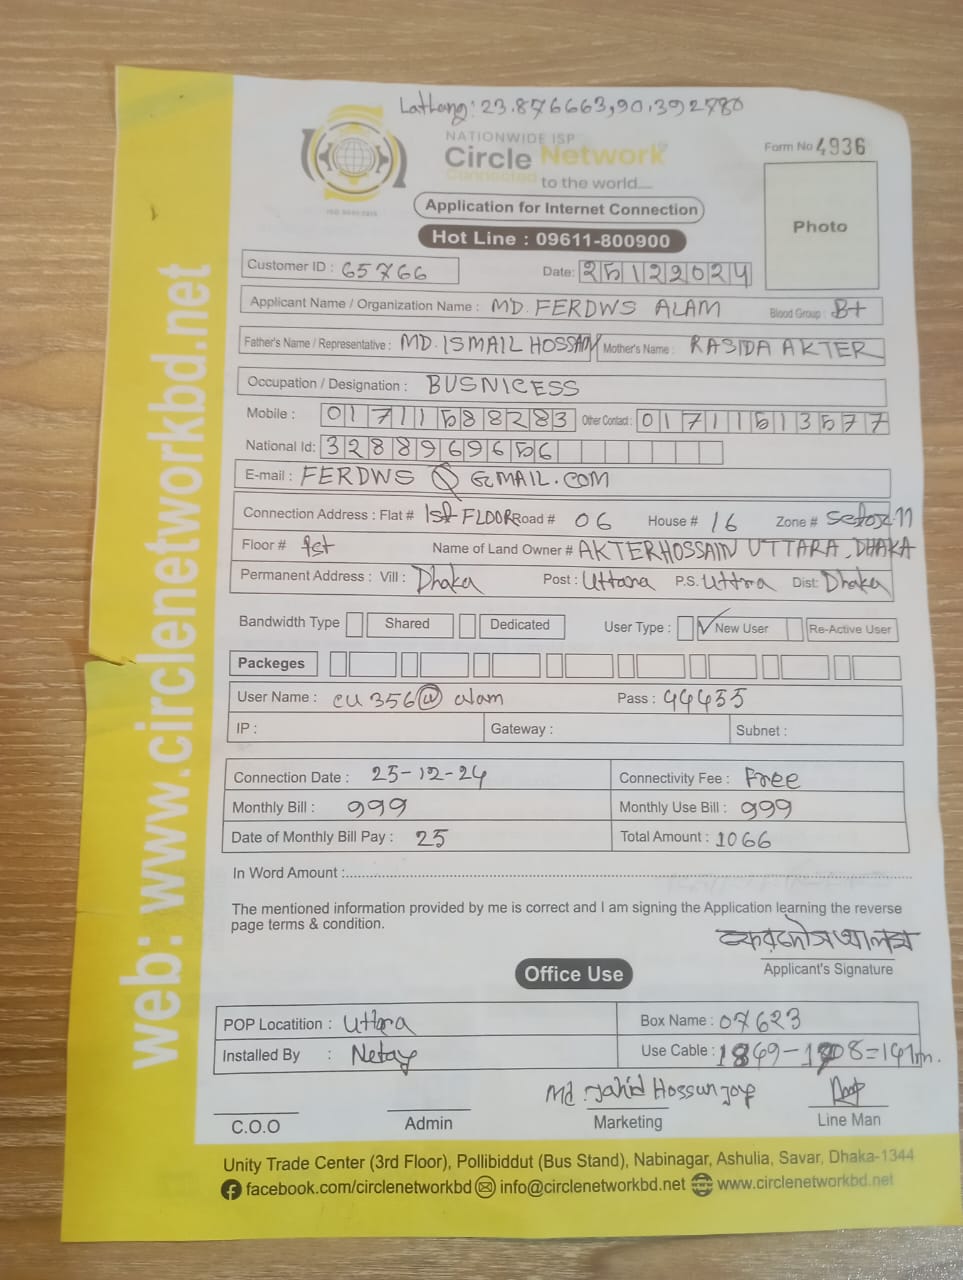 Latlong: 23.876663,90.392780
NATIONWIDE ISP
Circle Network
Connected to the world....
ISO 9001:2015
Form No 4936
Photo
Application for Internet Connection
Hot Line : 09611-800900
Customer ID : 65766 Date: 25122024
Applicant Name / Organization Name : MD. FERDWS ALAM Blood Group : B+
Father's Name / Representative : MD. ISMAIL HOSSAIN Mother's Name : RASIDA AKTER
Occupation / Designation : BUSNICESS
Mobile : 01711588283 Other Contact : 01711513577
National Id: 3288969656
E-mail : FERDWS @ GMAIL.COM
Connection Address : Flat # 1st FLOOR Road # 06 House # 16 Zone # Sector 11
Floor # 1st Name of Land Owner # AKTERHOSSAIN UTTARA, DHAKA
Permanent Address : Vill : Dhaka Post : Uttara P.S. Uttra Dist: Dhaka
Bandwidth Type Shared Dedicated User Type : ✓ New User Re-Active User
Packeges
User Name : cu356@alam Pass : 44455
IP : Gateway : Subnet :
Connection Date : 25-12-24 Connectivity Fee : Free
Monthly Bill : 999 Monthly Use Bill : 999
Date of Monthly Bill Pay : 25 Total Amount : 1066
In Word Amount :
The mentioned information provided by me is correct and I am signing the Application learning the reverse
page terms & condition.
ফেরদৌস আলম
Applicant's Signature
Office Use
POP Locatition : Uttra Box Name : 07623
Installed By : Use Cable : =141m.
Md. Jahid Hossun
C.O.O Admin Marketing Line Man
Unity Trade Center (3rd Floor), Pollibiddut (Bus Stand), Nabinagar, Ashulia, Savar, Dhaka-1344
facebook.com/circlenetworkbd info@circlenetworkbd.net www.circlenetworkbd.net
web: www.circlenetworkbd.net